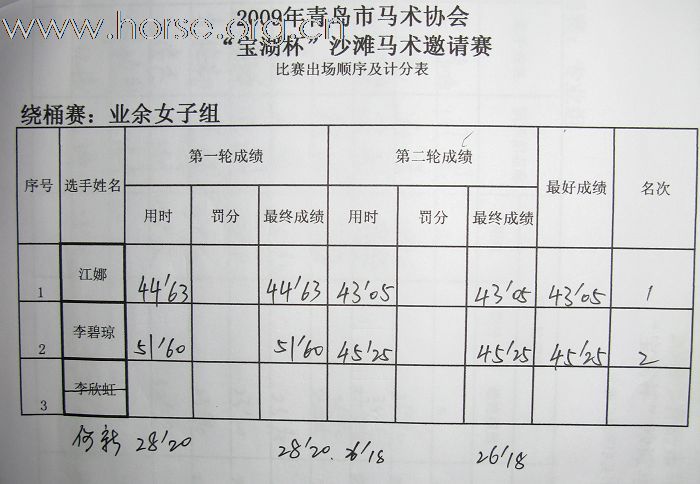 www.horse.org.cn
2009年青岛市马术协会
“宝湖杯”沙滩马术邀请赛
比赛出场顺序及计分表
绕桶赛：业余女子组
序号 选手姓名 第一轮成绩 第二轮成绩 最好成绩 名次
用时 罚分 最终成绩 用时 罚分 最终成绩
1 江娜 44'63 44'63 43'05 43'05 43'05 1
2 李碧琼 51'60 51'60 45'25 45'25 45'25 2
3 李欣虹
何新 28'20 28'20 26'18 26'18